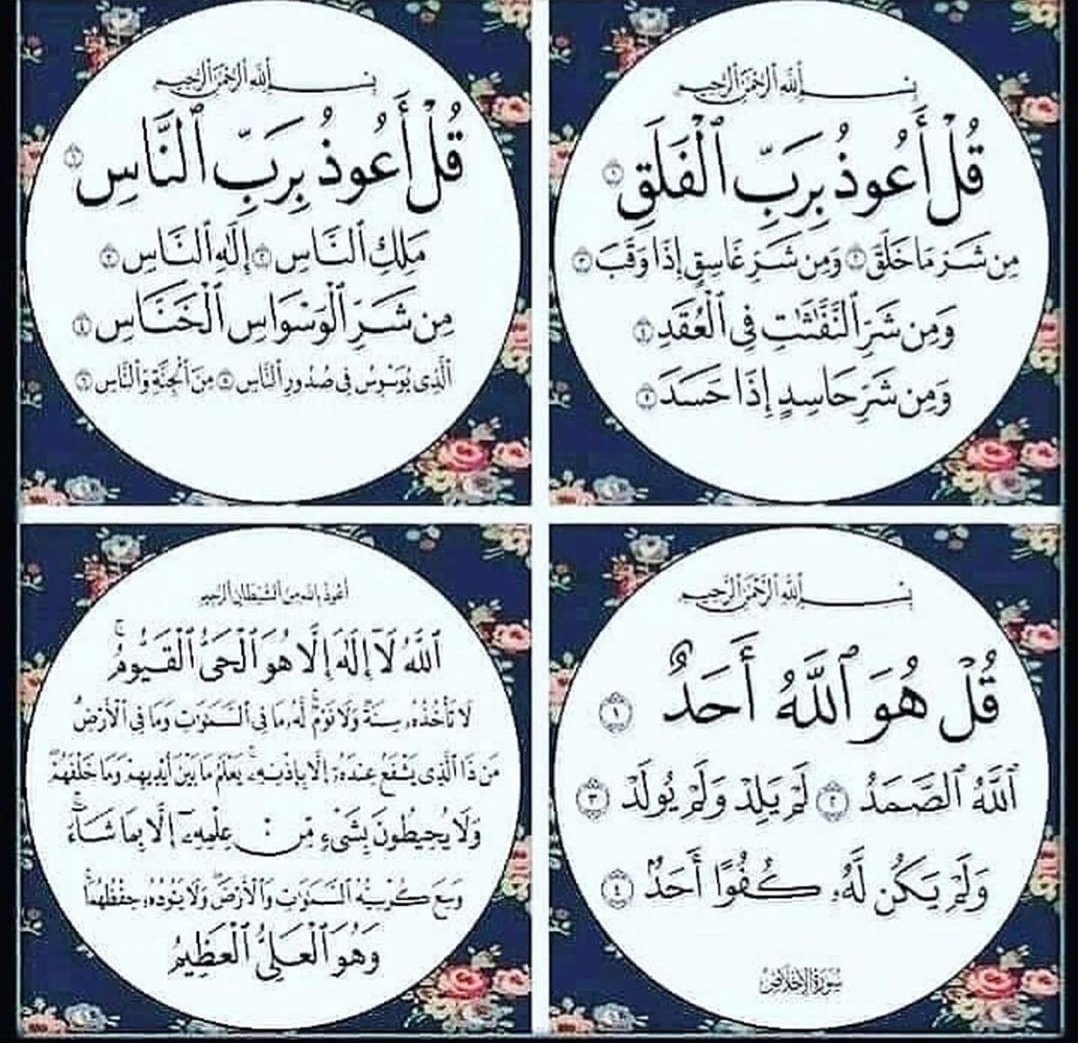 بِسْمِ ٱللَّهِ ٱلرَّحْمَٰنِ ٱلرَّحِيمِ
قُلْ أَعُوذُ بِرَبِّ ٱلْفَلَقِ ١
مِن شَرِّ مَا خَلَقَ ٢ وَمِن شَرِّ غَاسِقٍ إِذَا وَقَبَ ٣
وَمِن شَرِّ ٱلنَّفَّٰثَٰتِ فِى ٱلْعُقَدِ ٤
وَمِن شَرِّ حَاسِدٍ إِذَا حَسَدَ ٥
بِسْمِ ٱللَّهِ ٱلرَّحْمَٰنِ ٱلرَّحِيمِ
قُلْ أَعُوذُ بِرَبِّ ٱلنَّاسِ ١
مَلِكِ ٱلنَّاسِ ٢ إِلَٰهِ ٱلنَّاسِ ٣
مِن شَرِّ ٱلْوَسْوَاسِ ٱلْخَنَّاسِ ٤
ٱلَّذِى يُوَسْوِسُ فِى صُدُورِ ٱلنَّاسِ ٥ مِنَ ٱلْجِنَّةِ وَٱلنَّاسِ ٦
بِسْمِ ٱللَّهِ ٱلرَّحْمَٰنِ ٱلرَّحِيمِ
قُلْ هُوَ ٱللَّهُ أَحَدٌ ١
ٱللَّهُ ٱلصَّمَدُ ٢ لَمْ يَلِدْ وَلَمْ يُولَدْ ٣
وَلَمْ يَكُن لَّهُۥ كُفُوًا أَحَدٌۢ ٤
سُورَةُ الإِخْلَاصِ
أَعُوذُ بِاللهِ مِنَ ٱلشَّيْطَانِ ٱلرَّجِيمِ
ٱللَّهُ لَآ إِلَٰهَ إِلَّا هُوَ ٱلْحَىُّ ٱلْقَيُّومُ ۚ
لَا تَأْخُذُهُۥ سِنَةٌ وَلَا نَوْمٌ ۚ لَّهُۥ مَا فِى ٱلسَّمَٰوَٰتِ وَمَا فِى ٱلْأَرْضِ ۗ
مَن ذَا ٱلَّذِى يَشْفَعُ عِندَهُۥٓ إِلَّا بِإِذْنِهِۦ ۚ يَعْلَمُ مَا بَيْنَ أَيْدِيهِمْ وَمَا خَلْفَهُمْ ۖ
وَلَا يُحِيطُونَ بِشَىْءٍ مِّنْ عِلْمِهِۦٓ إِلَّا بِمَا شَآءَ ۚ
وَسِعَ كُرْسِيُّهُ ٱلسَّمَٰوَٰتِ وَٱلْأَرْضَ ۖ وَلَا يَـُٔودُهُۥ حِفْظُهُمَا ۚ
وَهُوَ ٱلْعَلِىُّ ٱلْعَظِيمُ